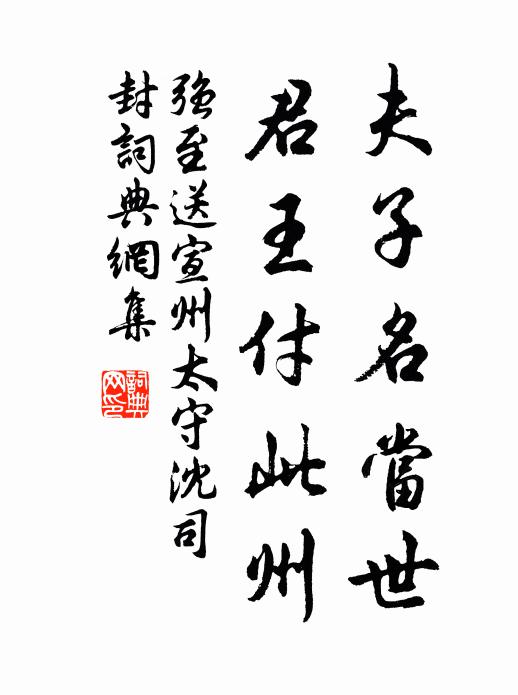 夫子名當世
君王付此州
強至送宣州太守沈司
封詞典網集
詞典
网印